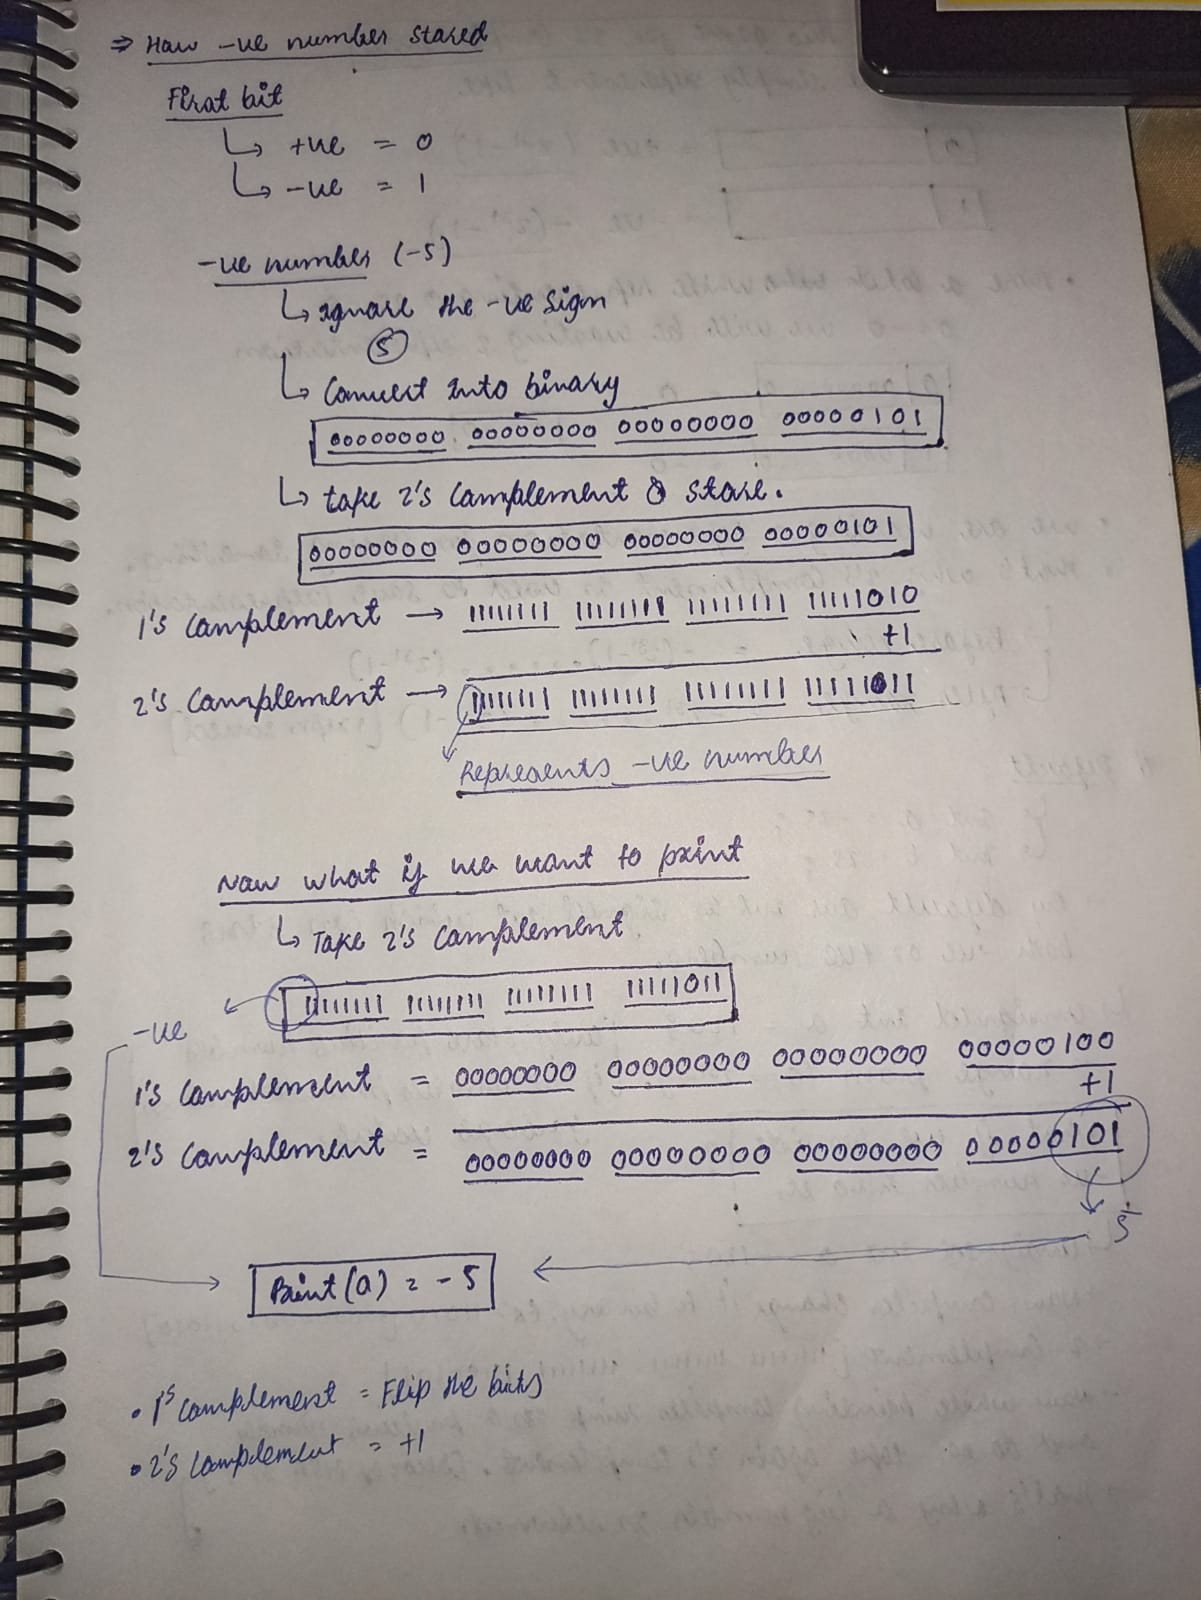 ⇒ How -ve number stored
First bit
↳ +ve = 0
↳ -ve = 1
-ve number (-5)
↳ ignore the -ve sign
5
↳ Convert into binary
00000000 00000000 00000000 00000101
↳ take 2's complement & store.
00000000 00000000 00000000 00000101
1's complement → 11111111 11111111 11111111 11111010
+1
2's complement → 11111111 11111111 11111111 11111011
Represents -ve number
Now what if we want to print
↳ Take 2's complement
11111111 11111111 11111111 11111011
-ve
1's complement = 00000000 00000000 00000000 00000100
+1
2's complement = 00000000 00000000 00000000 00000101
5
Print(a) = -5
• 1's complement = Flip the bits
• 2's complement = +1